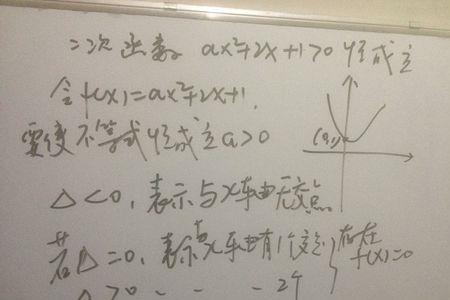 二次函数 ax²+2x+1>0 恒成立
令f(x)=ax²+2x+1,
要使不等式恒成立 a>0
(0,1)
△<0,表示与x轴无交点
若△=0,表示与x轴有1个交点 } 存在f(x)=0
△>0 - - - 2个